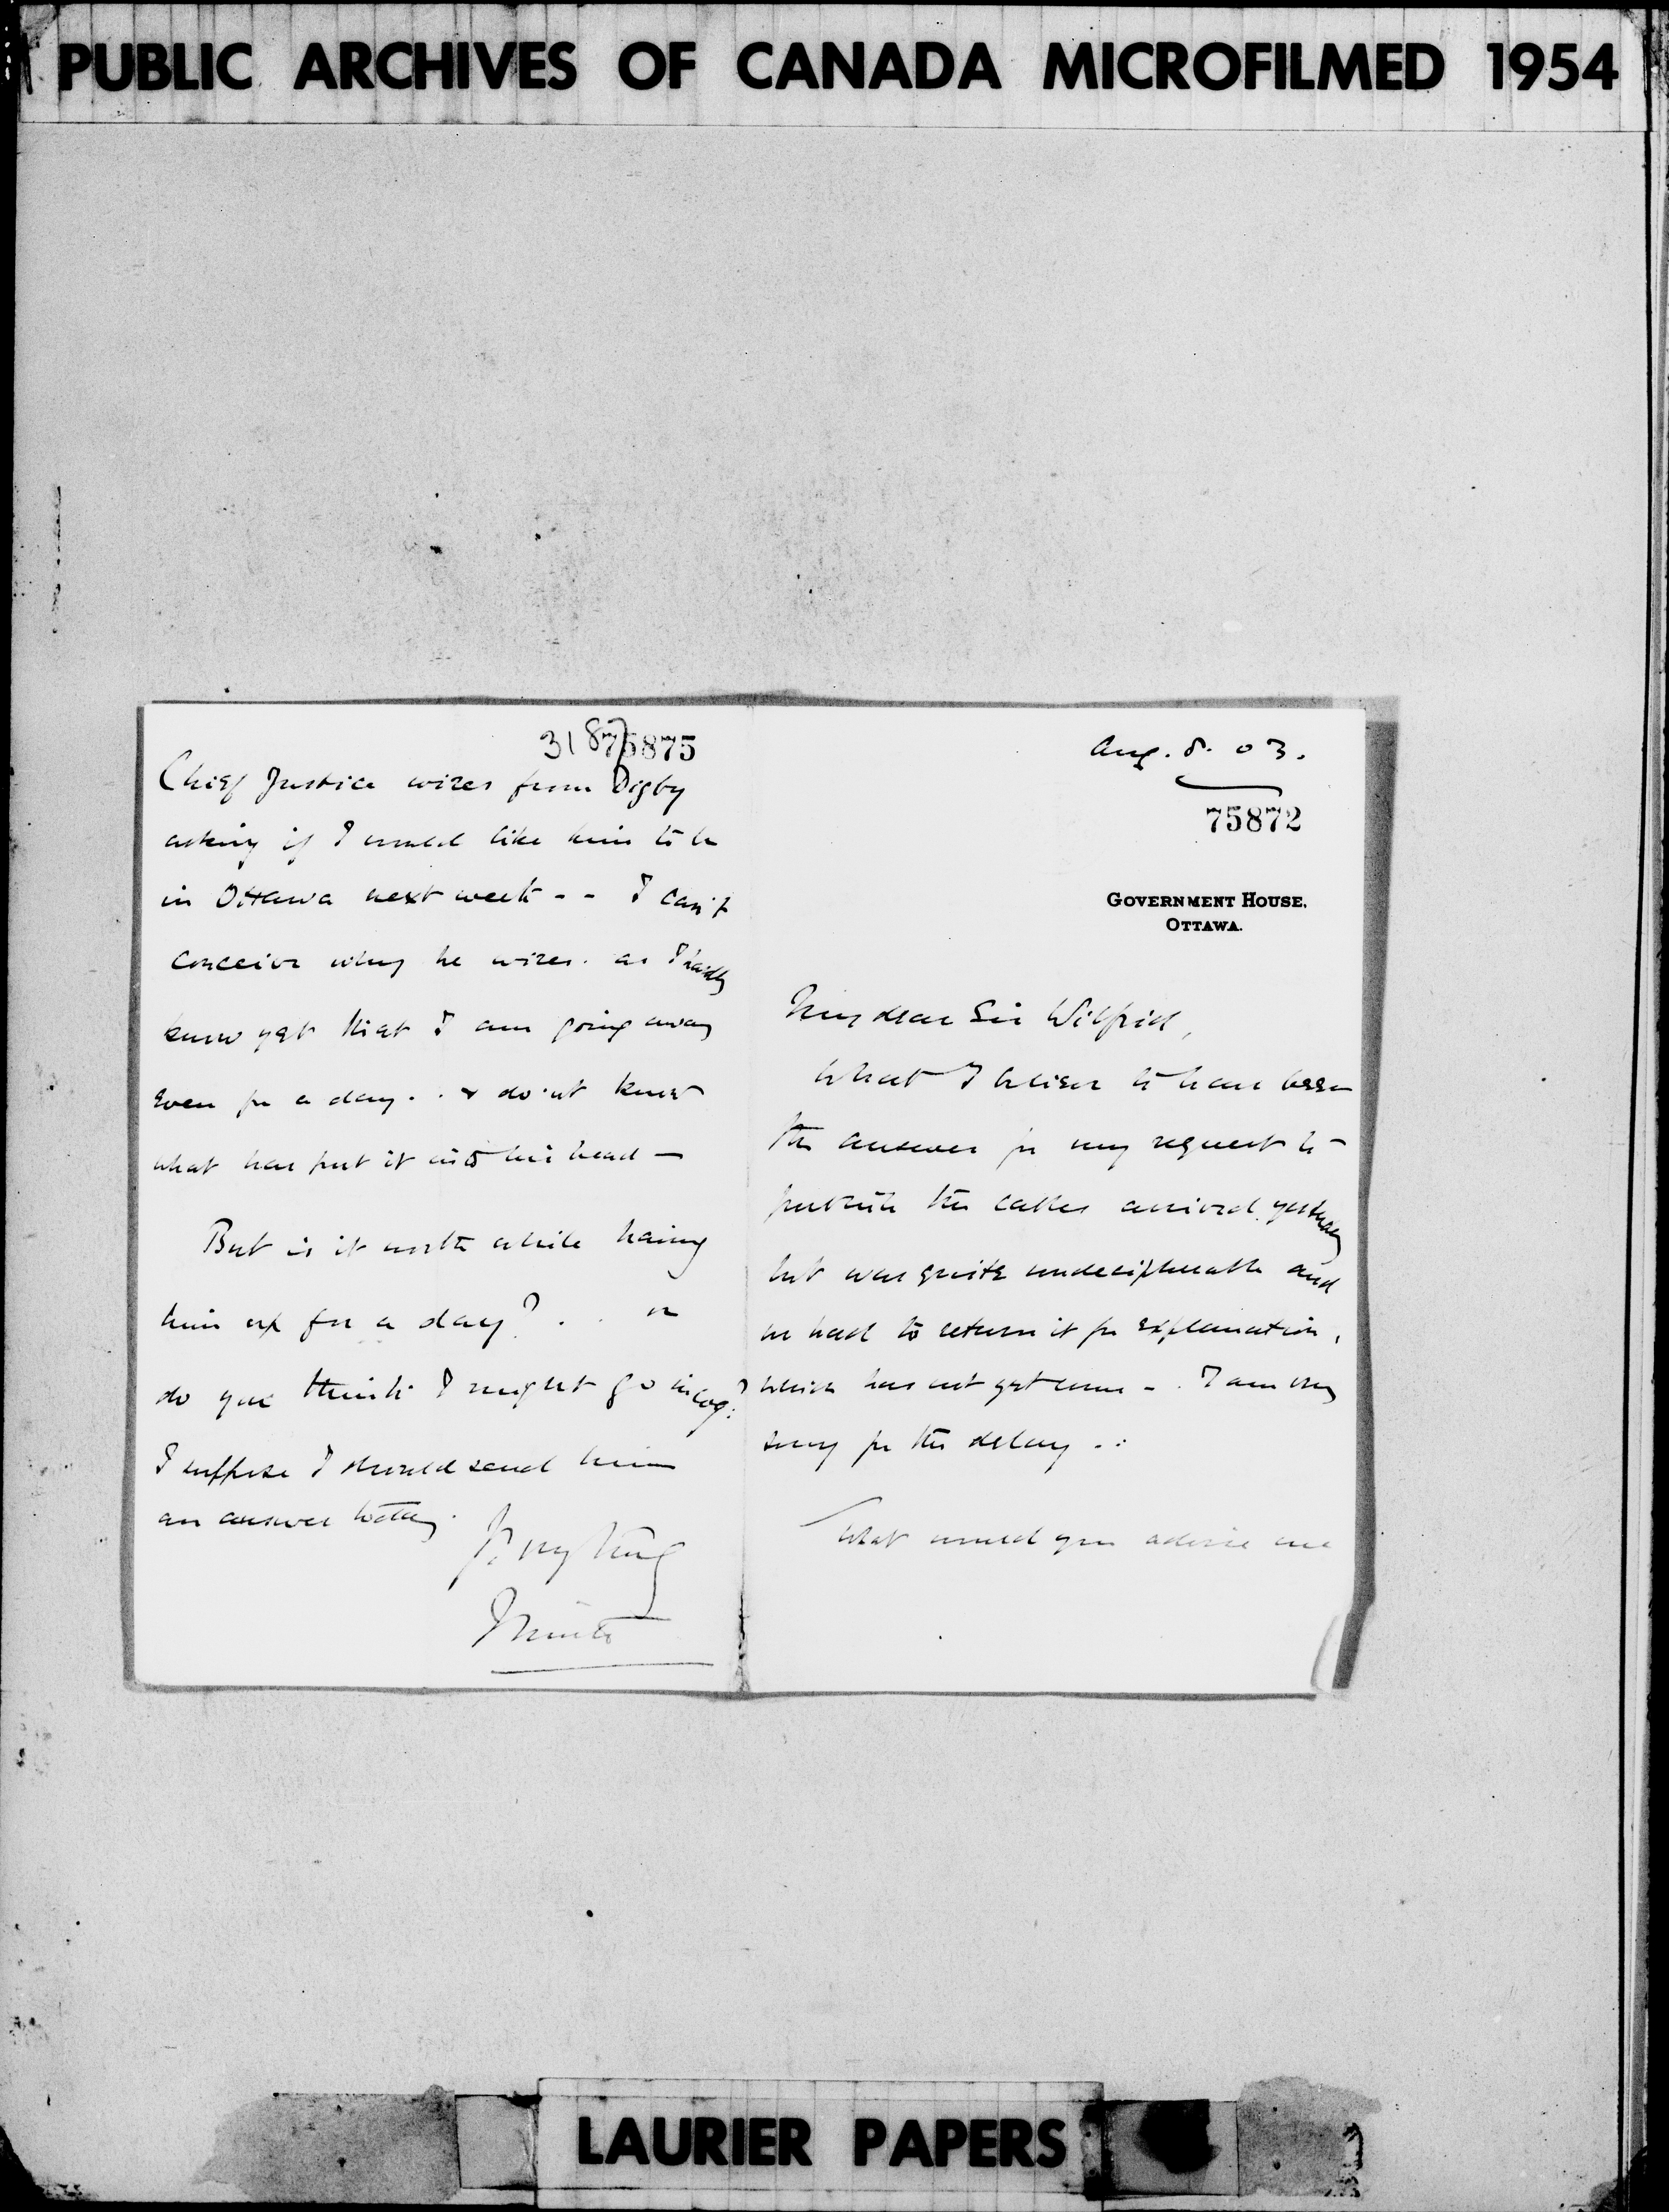 PUBLIC ARCHIVES OF CANADA MICROFILMED 1954
318
75875
Chief Justice wires from Digby
asking if I would like him to be
in Ottawa next week - - I can't
conceive why he wires. as I hardly
know yet that I am going away
even for a day. . & don't know
what has put it into his head -
But is it worth while having
him up for a day? . . or
do you think I might go incog:?
I suppose I should send him
an answer today.
Yrs. very truly
Minto
Aug. 8. 03.
75872
GOVERNMENT HOUSE,
OTTAWA.
My dear Sir Wilfrid,
What I believe to have been
the answer for my request to
publish the cables arrived yesterday
but was quite undecipherable and
we had to return it for explanation,
which has not yet come - . I am very
sorry for the delay . :
What would you advise me
LAURIER PAPERS